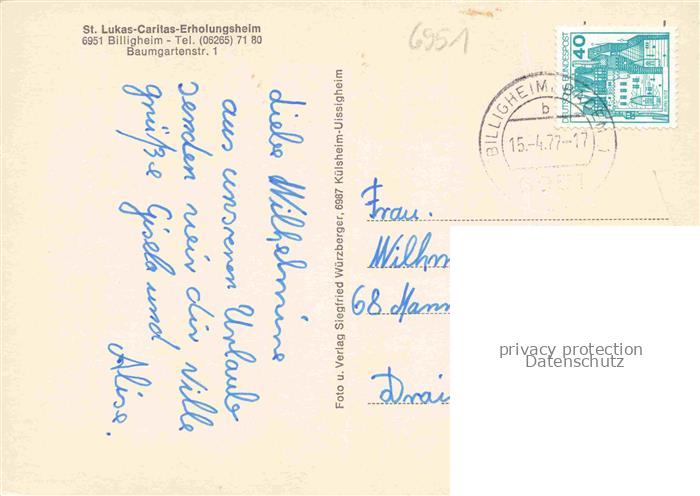 St. Lukas-Caritas-Erholungsheim
6951 Billigheim - Tel. (06265) 71 80
Baumgartenstr. 1
6951
DEUTSCHE BUNDESPOST
40
BILLIGHEIM, BADEN 1
b
15.-4.77-17
6951
liebe Wilhelmine
aus unseren Urlaub
senden wir dir viele
grüße Gisela und
Alise.
Foto u. Verlag Siegfried Würzberger, 6987 Külsheim-Uissigheim
Frau.
Wilhm
68 Mann
Drai
privacy protection
Datenschutz